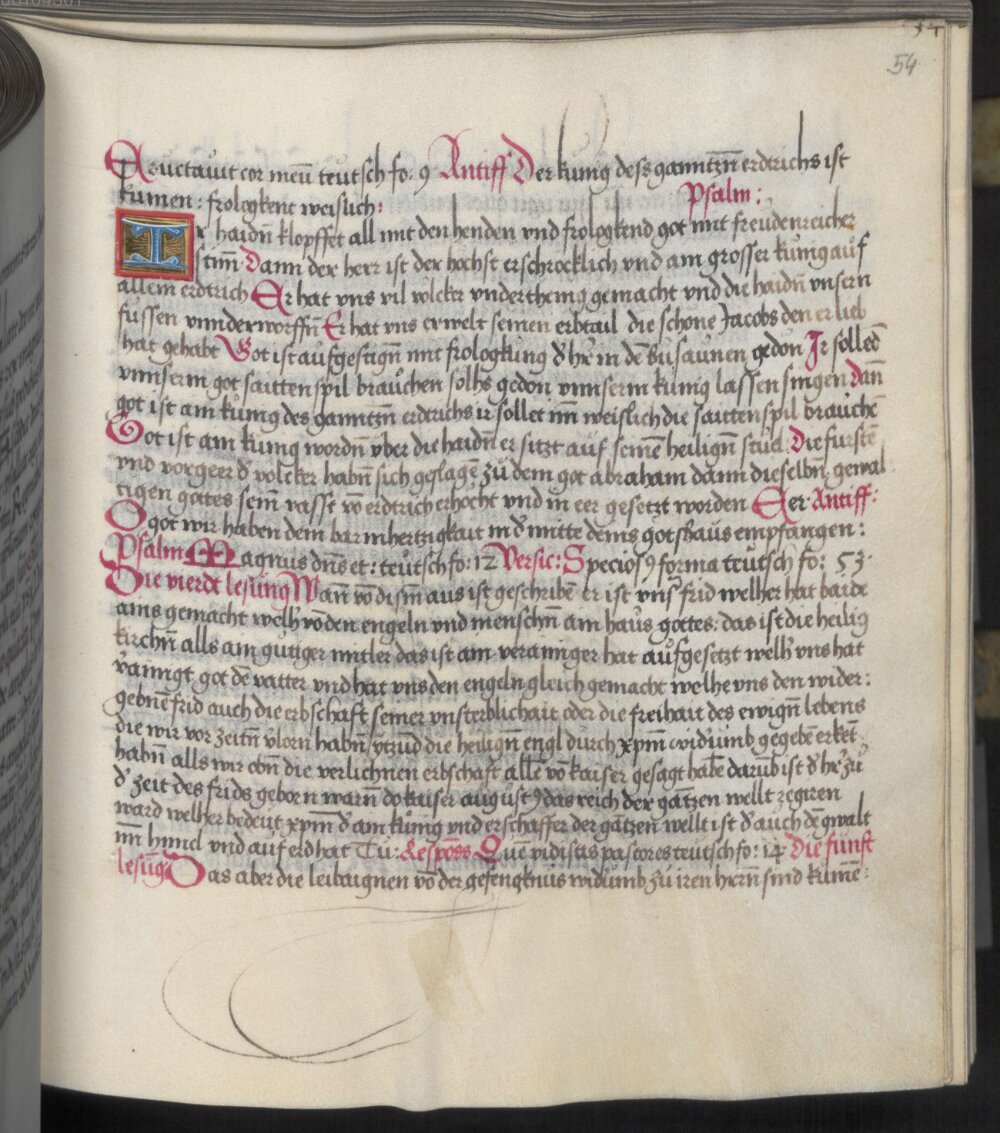 54
54
Eructauit cor meū teutsch fo. 9 Antiff Der kunig dess ganntzn̄ erdtrichs ist
kumen: frologkent weislich: Psalm:
Ir haidn̄ klopffet all mit den henden vnd frologkend got mit freudenreicher
stim̄ Dann der herr ist der hochst erschrocklich vnd ain grosser kunig auf
allem erdtrich Er hat vns vil volcker vnderthenig gemacht vnd die haidn̄ vnsern
fussen vnnderworffn̄ Er hat vns erwelt seinen erbtail die schone Jacobs den er lieb
hat gehabt Got ist aufgestign̄ mit frologkung d' he' in de busaunen gedon Ir solled
vnnserm got saitten spil brauchen solhs gedon vnnserm kunig lassen singen Dan̄
got ist ain kunig des ganntzn̄ erdtrichs ir sollet im̄ weislich die saitten spil brauchē
Got ist ain kunig wordn̄ vber die haidn̄ er sitzt auf seinē heilign̄ stul. Die furstē
vnd vorgeer d' volcker habn̄ sich zu dem got abraham dann dieselbn̄ gewal
tigen gottes sein vasst vō erdtrich erhocht vnd in eer gesetzt worden Eer Antiff:
O got wir haben dein barmhertzigkait in d' mitte deins gotshaus empfangen:
Psalm Magnus dn̄s et: teutsch fo: 12 Versic: Specios9 forma teutsch fo: 53.
Die vierdt lesung Wan̄ vō dism̄ aus ist geschribē er ist vns' frid welher hat baide
ains gemacht welh' vō den engeln vnd menschn̄ ain haus gottes. das ist die heilig
kirchn̄ alls ain gutiger mitler das ist ain verainiger hat aufgesetzt welh' vns hat
v'ainigt got dē vatter vnd hat vns den engeln gleich gemacht welhe vns den wider:
gebnē frid auch die erbschaft seiner vnsterblichait oder die freihait des ewign̄ lebens
die wir vor zeitn̄ v'lorn habn̄ vnd die heilign̄ engl durch xpm̄ widumb gegebē erket
habn̄ alls wir obn̄ die verlichnen erbschaft allē vō kaiser gesagt habē darūb ist d' he' zu
d' zeit des frids geborn warn̄ do kaiser august9 das reich der gātzen wellt regiren
ward welher bedeut xpm̄ d' ain kunig vnd erschaffer der gātzen wellt ist d' auch dē gwalt
im̄ himel vnd auf erd hat Tu: Respons Quē vidistis pastores teutsch fo: 14 Die funft
lesūg Das aber die leibaignen vō der gefengknus widumb zu iren hern̄ sind kumē: